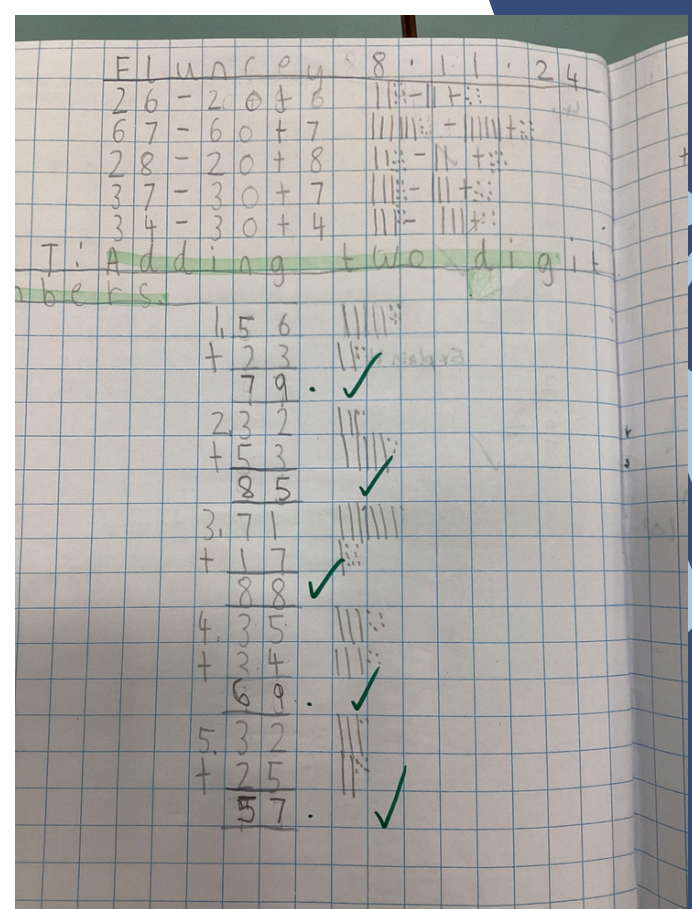 Fluncey 8.11.24
26 - 20 + 6
67 - 60 + 7
28 - 20 + 8
37 - 30 + 7
34 - 30 + 4
T: Adding two digit
nbers.
1. 56
+ 23
79.
2. 32
+ 53
85
3. 71
+ 17
88
4. 35
+ 34
69.
5. 32
+ 25
57.